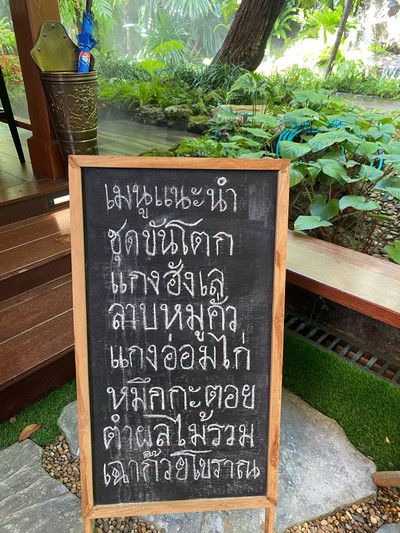 เมนูแนะนำ
ชุดขันโตก
แกงฮังเล
ลาบหมูคั่ว
แกงอ่อมไก่
หมึกกะตอย
ตำผลไม้รวม
เฉาก๊วยโบราณ